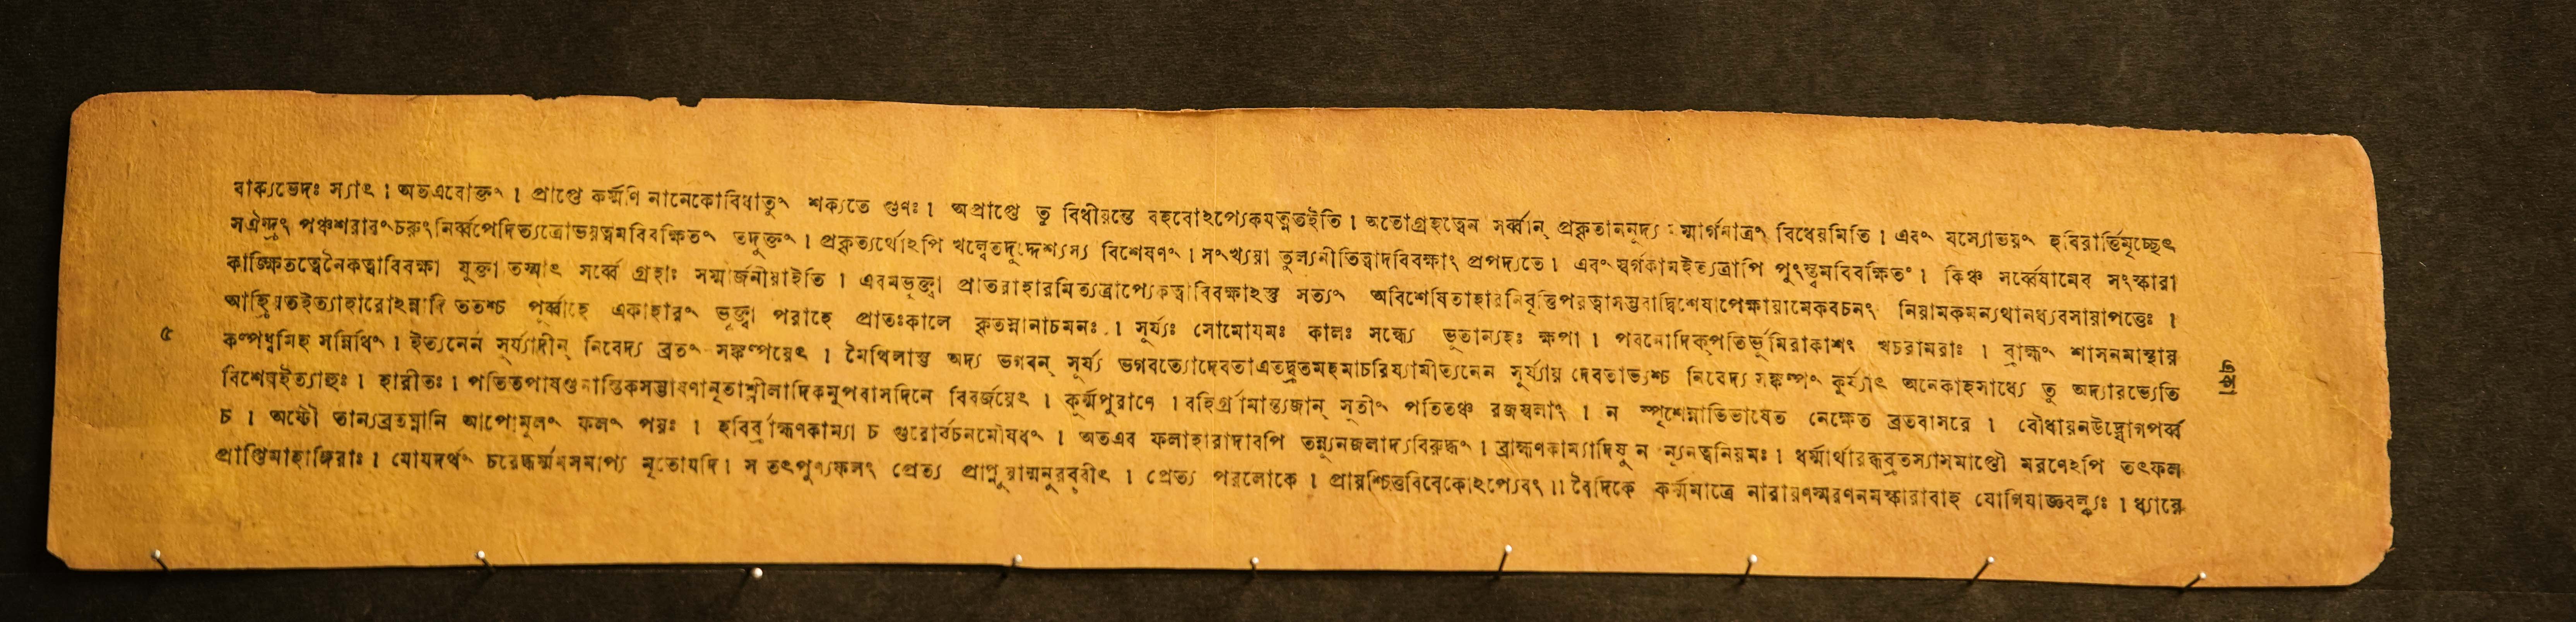 বাক্যভেদঃ স্যাৎ । অতএবোক্তং । প্রাপ্তে কর্ম্মণি নানেকোবিধাতুং শক্যতে গুণঃ । অপ্রাপ্তে তু বিধীয়ন্তে বহবোঽপ্যেকযত্নতইতি । অতোগ্রহত্বেন সর্ব্বান্ প্রকৃতাননূদ্য সম্মার্গমাত্রং বিধেয়মিতি । এবং যস্যোভয়ং হবিরার্ত্তিমৃচ্ছেৎ
সঐন্দ্রং পঞ্চশরাবংচরুংনির্ব্বপেদিত্যত্রোভয়ত্বমবিবক্ষিতং তদুক্তং । প্রকৃত্যর্থোঽপি খল্বেতদুদ্দেশ্যস্য বিশেষণং । সংখ্যয়া তুল্যনীতিত্বাদবিবক্ষাং প্রপদ্যতে । এবংস্বর্গকামইত্যত্রাপি পুংস্ত্বমবিবক্ষিতং । কিঞ্চ সর্ব্বেষামেব সংস্কারা
কাঙ্ক্ষিতত্বেনৈকত্বাবিবক্ষা যুক্তা তস্মাৎ সর্ব্বে গ্রহাঃ সম্মার্জনীয়াইতি । এবমভুক্ত্বা প্রাতরাহারমিত্যত্রাপ্যেকত্বাবিবক্ষাঽস্তু সত্যং অবিশেষিতাহারনিবৃত্তিপরত্বাসম্ভবাদ্বিশেষাপেক্ষায়ামেকবচনং নিয়ামকমন্যথানধ্যবসায়াপত্তেঃ ।
আহ্রিয়তইত্যাহারোঽন্নাদি ততশ্চ পূর্ব্বাহে একাহারং ভুক্ত্বা পরাহে প্রাতঃকালে কৃতস্নানাচমনঃ । সূর্য্যঃ সোমোযমঃ কালঃ সন্ধ্যে ভূতান্যহঃ ক্ষপা । পবনোদিক্‌পতির্ভূমিরাকাশং খচরামরাঃ । ব্রাহ্মং শাসনমাস্থায়
৫ কল্পধ্বমিহ সন্নিধিং । ইত্যনেন সূর্য্যাদীন্ নিবেদ্য ব্রতং সঙ্কল্পয়েৎ । মৈথিলাস্তু অদ্য ভগবন্ সূর্য্য ভগবত্যোদেবতাএতদ্ব্রতমহমাচরিষ্যামীত্যনেন সূর্য্যায় দেবতাভ্যশ্চ নিবেদ্য সঙ্কল্পং কুর্য্যাৎ অনেকাহসাধ্যে তু অদ্যারভ্যেতি
বিশেষইত্যাহুঃ । হারীতঃ । পতিতপাষণ্ডনাস্তিকসম্ভাষণানৃতাশ্লীলাদিকমুপবাসদিনে বিবর্জয়েৎ । কূর্ম্মপুরাণে । বহির্গ্রামান্ত্যজান্ সূতীং পতিতঞ্চ রজস্বলাং । ন স্পৃশেন্নাভিভাষেত নেক্ষেত ব্রতবাসরে । বৌধায়নউদ্যোগপর্ব্ব
চ । অষ্টৌ তান্যব্রতঘ্নানি আপোমূলং ফলং পয়ঃ । হবির্ব্রাহ্মণকাম্যা চ গুরোর্বচনমৌষধং । অতএব ফলাহারাদাবপি তন্ন্যূনজলাদ্যবিরুদ্ধং । ব্রাহ্মণকাম্যাদিষু ন ন্যূনত্বনিয়মঃ । ধর্ম্মার্থারব্ধব্রতস্যাসমাপ্তৌ মরণেঽপি তৎফল
প্রাপ্তিমাহাঙ্গিরাঃ । যোযদর্থং চরেদ্ধর্ম্মমসমাপ্য মৃতোযদি । স তৎপুণ্যফলং প্রেত্য প্রাপ্নুয়ান্মনুরব্রবীৎ । প্রেত্য পরলোকে । প্রায়শ্চিত্তবিবেকোঽপ্যেবং ॥ বৈদিকে কর্ম্মমাত্রে নারায়ণস্মরণনমস্কারাবাহ যোগিযাজ্ঞবল্ক্যঃ । ধ্যায়ে